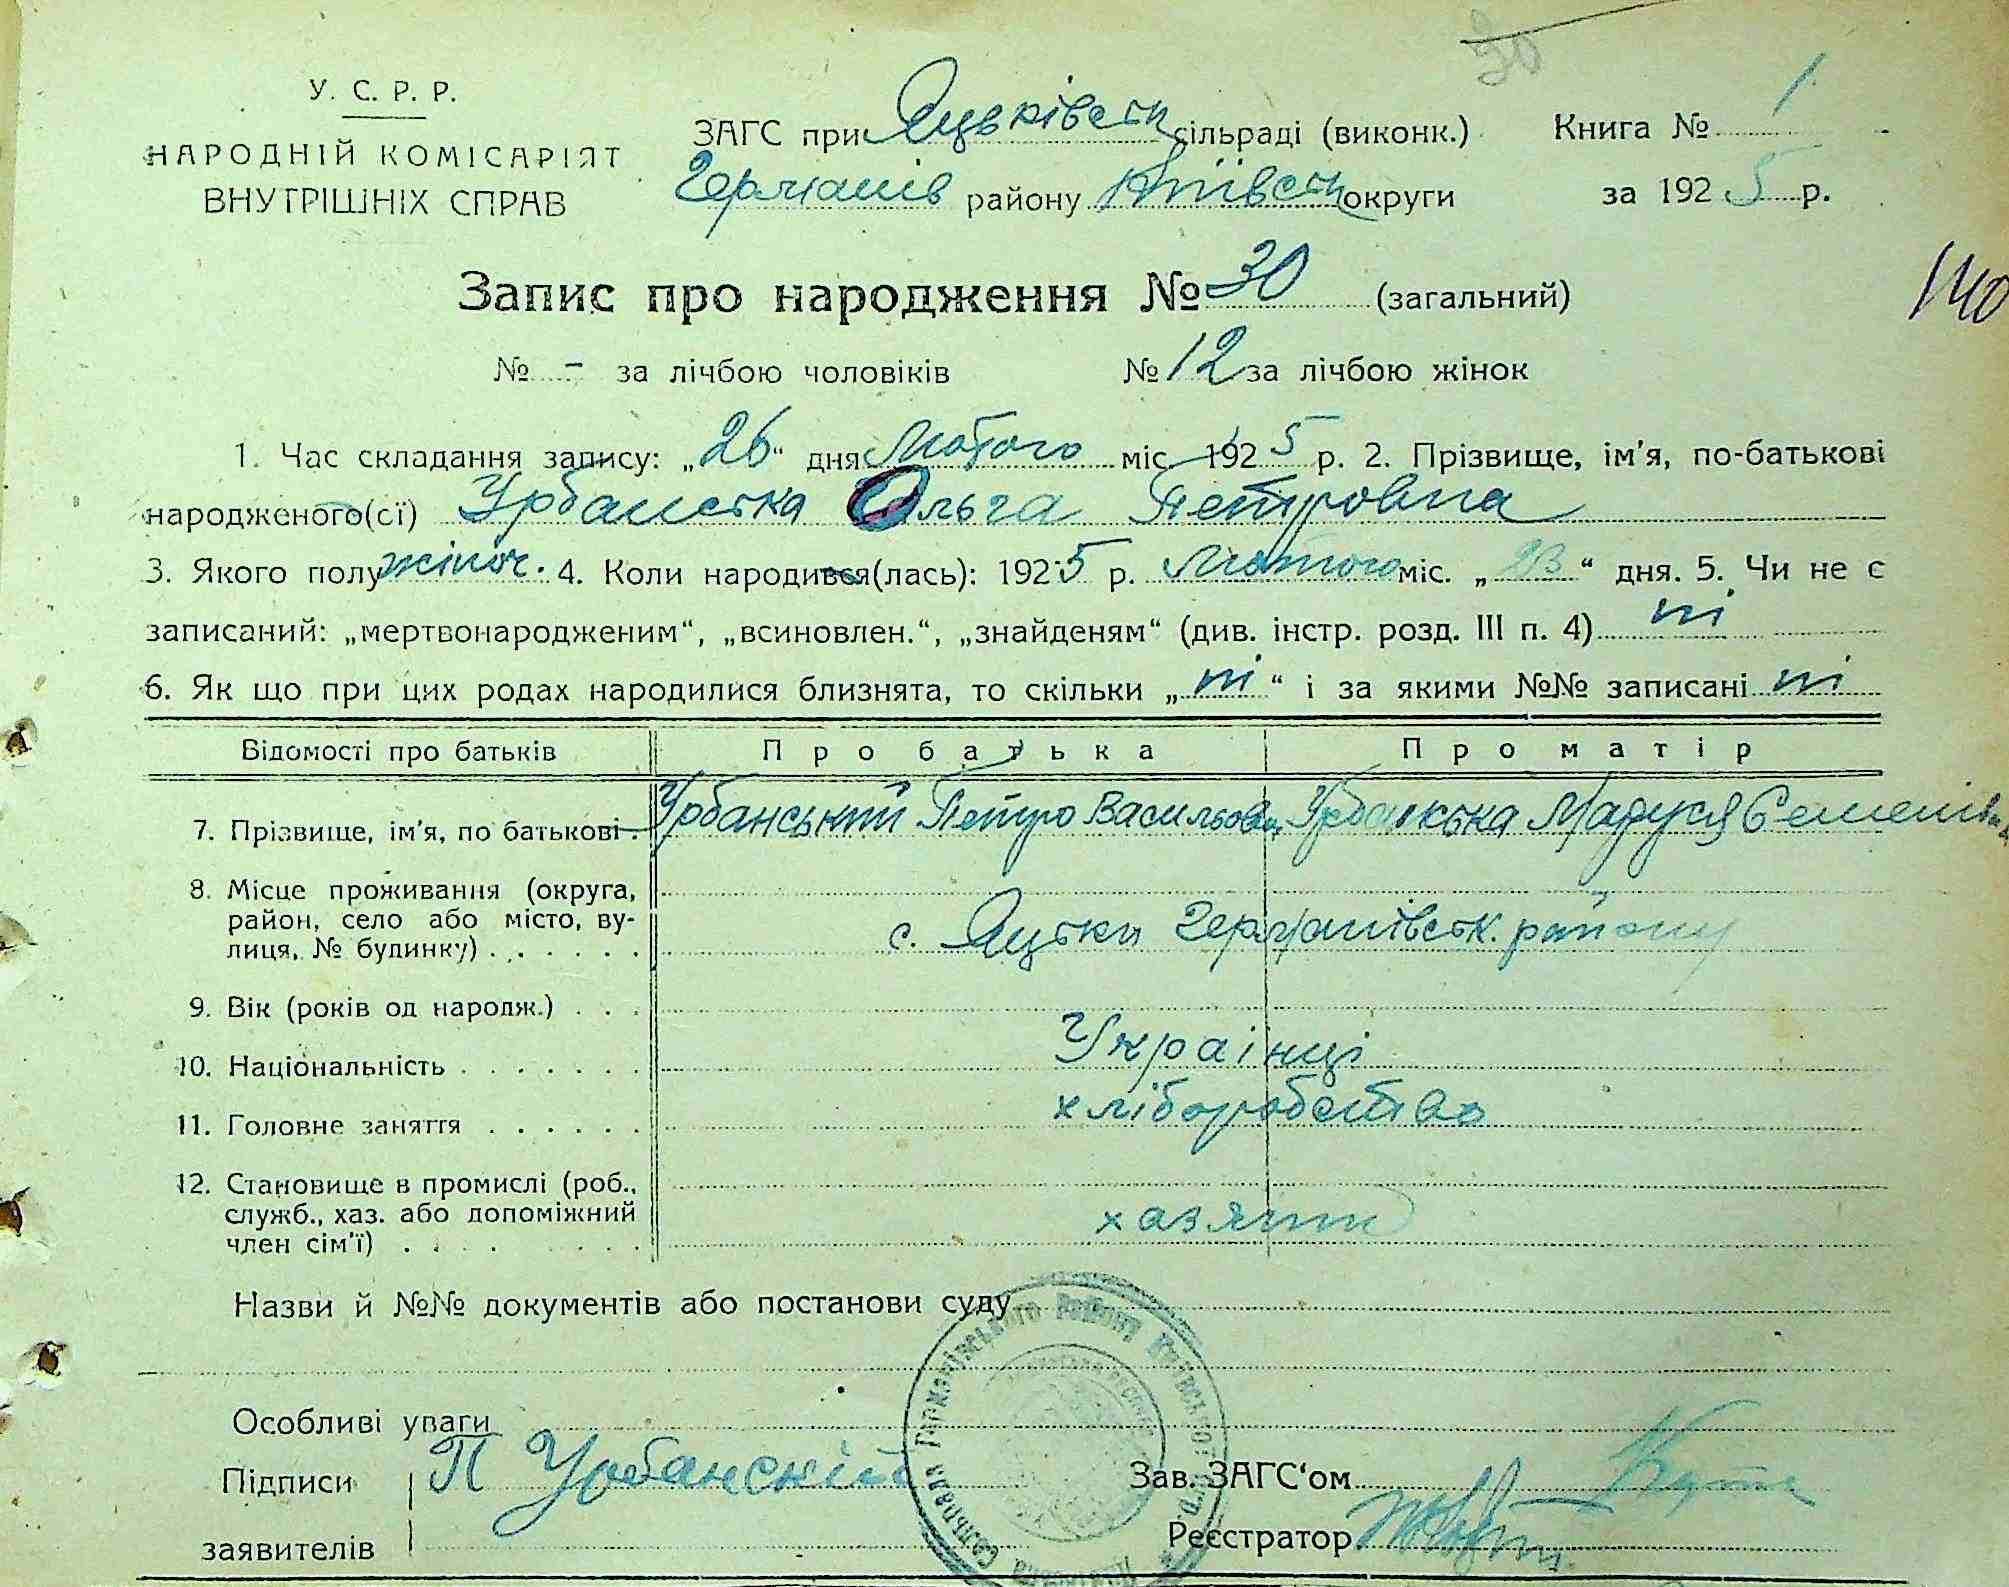 30
У. С. Р. Р.
НАРОДНІЙ КОМІСАРІЯТ
ВНУТРІШНІХ СПРАВ
ЗАГС при Яцьківськ сільраді (виконк.) Книга № 1
Германів району Київськ округи за 1925 р.
140
Запис про народження № 30 (загальний)
№ - за лічбою чоловіків № 12 за лічбою жінок
1. Час складання запису: „26“ дня Лютого міс. 1925 р. 2. Прізвище, ім'я, по-батькові
народженого(сї) Урбанська Ольга Петровна
3. Якого полу жіноч. 4. Коли народився(лась): 1925 р. Лютого міс. „23“ дня. 5. Чи не є
записаний: „мертвонародженим“, „всиновлен.“, „знайденям“ (див. інстр. розд. III п. 4) ні
6. Як що при цих родах народилися близнята, то скільки „ні“ і за якими №№ записані ні
Відомості про батьків Про батька Про матір
7. Прізвище, ім'я, по батькові Урбанський Петро Васильов Урбанська Маруся Семенівна
8. Місце проживання (округа,
район, село або місто, ву-
лиця, № будинку) . . . . . . с. Яцьки Германівськ. району
9. Вік (років од народж.) . . .
10. Національність . . . . . . . Українці
11. Головне заняття . . . . . . хліборобство
12. Становище в промислі (роб.,
служб., хаз. або допоміжний
член сім'ї) . . . . . . . хазяїн
Назви й №№ документів або постанови суду
Особливі уваги
Підписи П Урбанскій Зав. ЗАГС‘ом
заявителів Реєстратор
Сельрада Германівського Району Київської Окр.